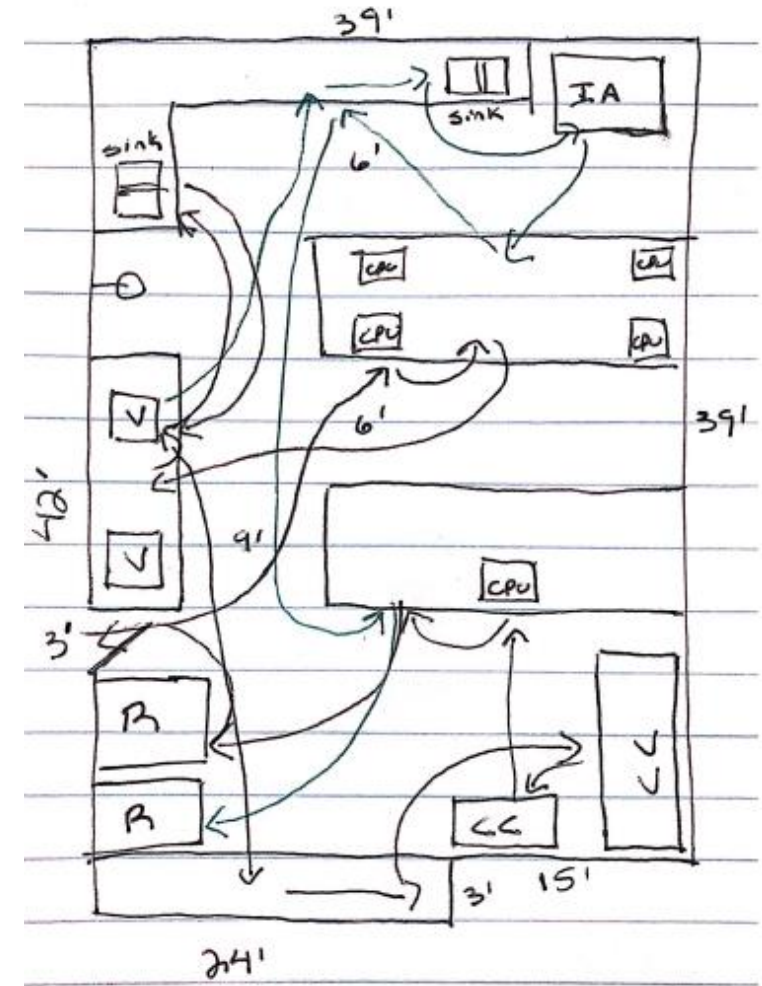 39'
sink
IA
sink
6'
CPU CPU
CPU CPU
V
6'
39'
42'
9'
V
CPU
3'
R
CC
R
CC
3'
15'
24'